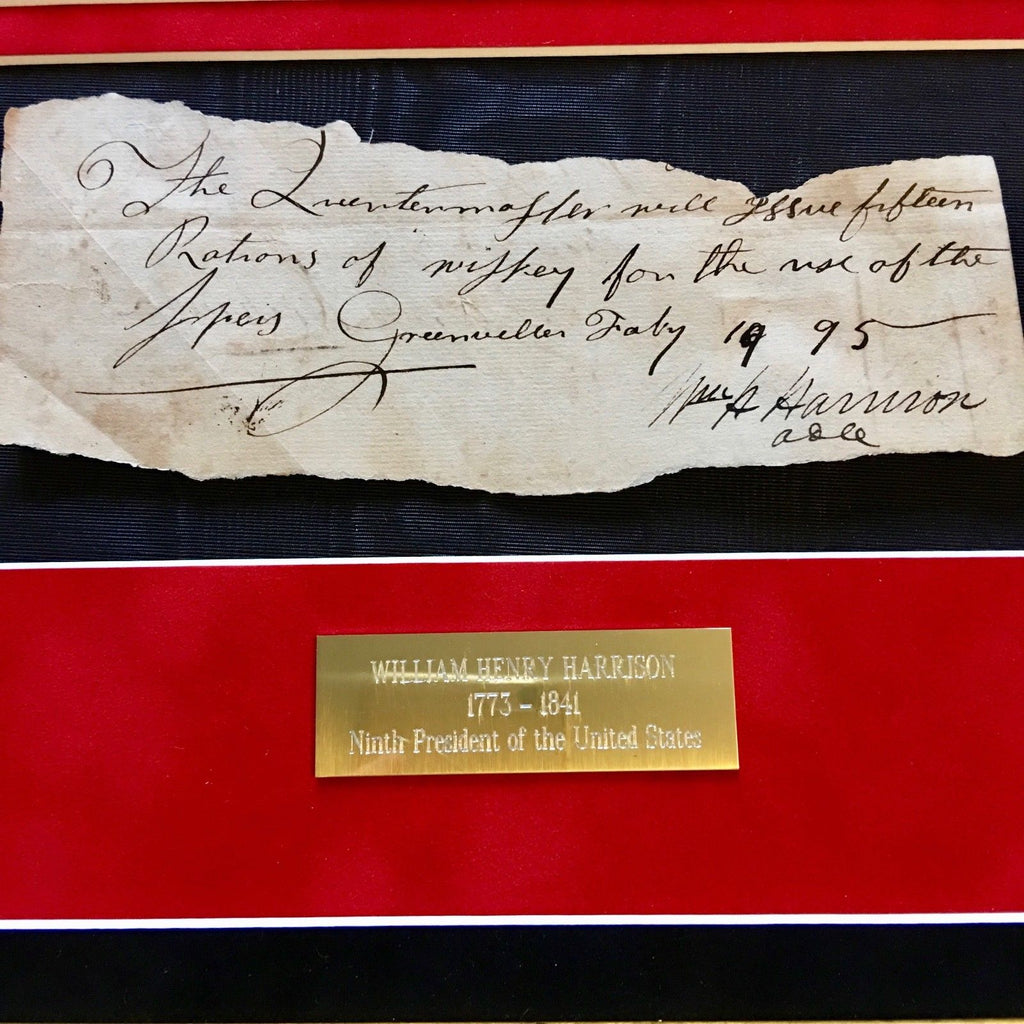 The Quertermaster will Issue fifteen
Rations of wiskey for the use of the
Speis Greenveller Faby 19 95
Wm H Harrison
adc
WILLIAM HENRY HARRISON
1773 – 1841
Ninth President of the United States